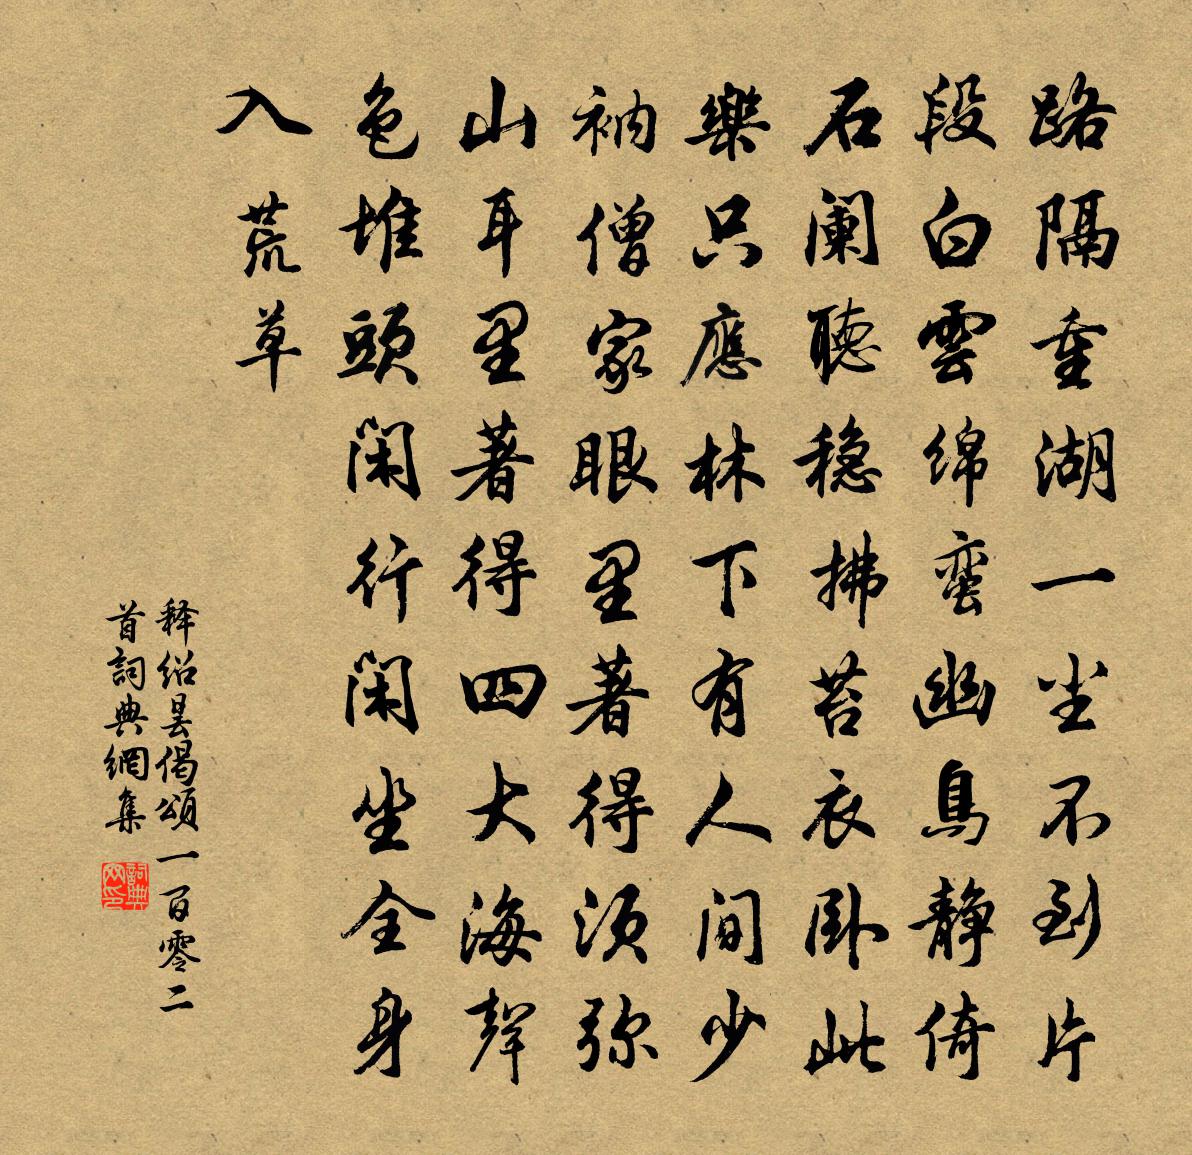 路隔重湖一尘不到片
段白雲绵蛮幽鳥静倚
石阑聽穏拂苔衣卧此
樂只應林下有人间少
衲僧家眼里著得须弥
山耳里著得四大海聲
色堆頭闲行闲坐全身
入荒草
释绍昙偈頌一百零二
首詞典網集
詞典网印